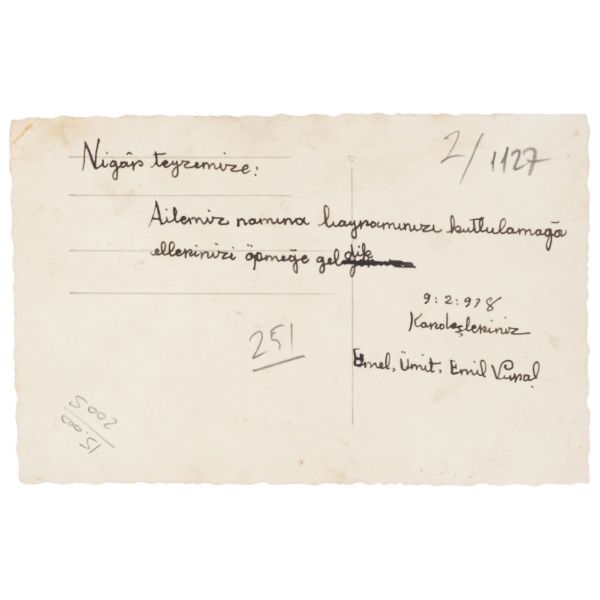 2/1127
Nigâr teyzemize:
Ailemiz namına bayramınızı kutlulamağa
ellerinizi öpmeğe geldik
9:2:938
Kardeşleriniz
Emel, Ümit, Emil Vural
251
15.00
2005